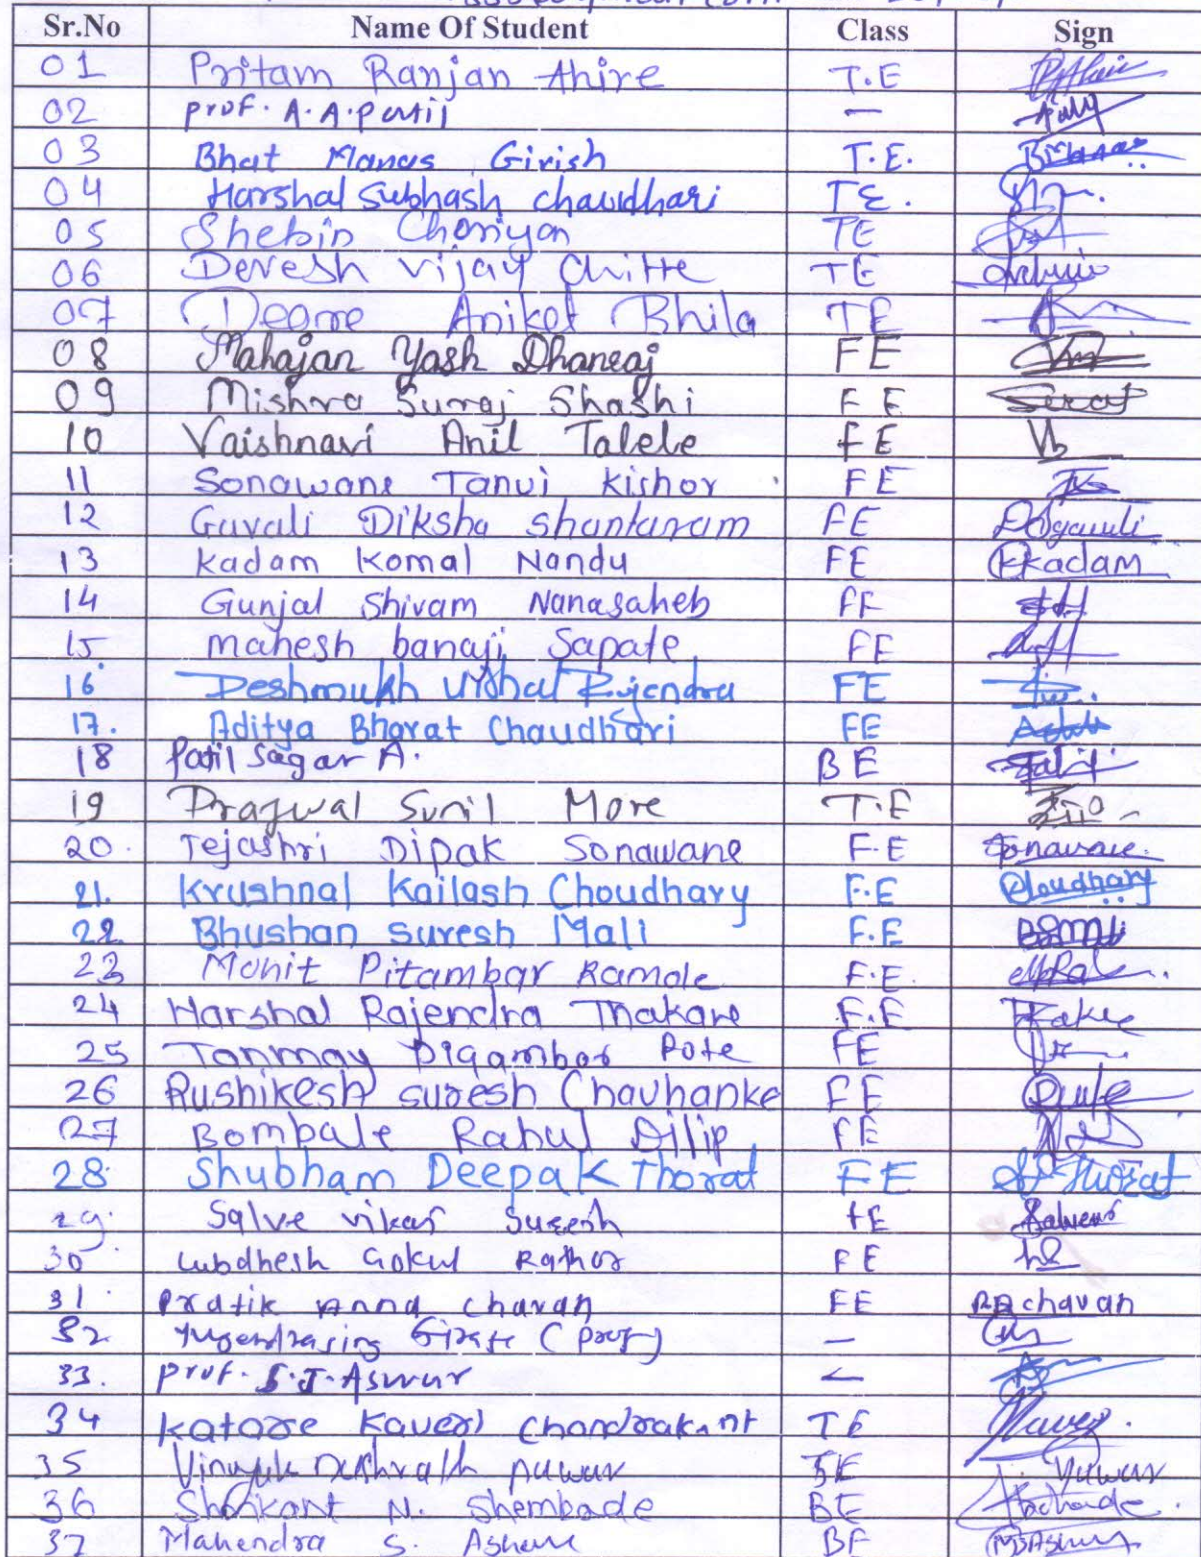 Sr.No Name Of Student Class Sign
01 Pritam Ranjan Ahire T.E
02 prof. A.A.patil —
03 Bhat Manas Girish T.E.
04 Harshal Subhash chaudhari T.E.
05 Shebin Cheriyan TE
06 Devesh vijay Chitte TE
07 Deore Aniket Bhila TE
08 Mahajan Yash Dhanraj FE
09 Mishra Suraj Shashi FE
10 Vaishnavi Anil Talele FE
11 Sonawane Tanvi Kishor FE
12 Gavali Diksha Shantaram FE DSgavali
13 Kadam Komal Nandu FE Kkadam
14 Gunjal Shivam Nanasaheb FE
15 mahesh banaji Sapate FE
16 Deshmukh Vishal Rajendra FE
17. Aditya Bharat Chaudhari FE
18 Patil Sagar A. BE
19 Prajwal Sunil More T.E
20. Tejashri Dipak Sonawane F.E Sonawane.
21. Krushnal Kailash Choudhary F.E Choudhary
22 Bhushan Suresh Mali F.E BSMali
23 Mohit Pitambar Ramole F.E.
24 Harshal Rajendra Thakare F.E
25 Tanmay Digambar Pote FE
26 Rushikesh suresh Chavhanke FE
27 Bombale Rahul Dilip FE
28 Shubham Deepak Thorat FE Thorat
29. Salve vikas Suresh FE
30 Lubdhesh Gokul Rathor FE
31. Pratik Anna chavan FE PAchavan
32 Yugendrasing Girase (prof) —
33. prof. S.J.Aswar —
34 Katore Kaveri Chandrakant TE
35 Vinayak Dashrath Pawar
36 Shrikant N. Shembade BE
37 Mahendra S. BE